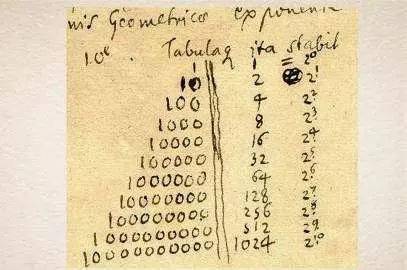 nis Geometricae exponente
10e. Tabulaq ita stabit
1 1 2⁰
10 2 2¹
100 4 2²
1000 8 2³
10000 16 2⁴
100000 32 2⁵
1000000 64 2⁶
10000000 128 2⁷
100000000 256 2⁸
1000000000 512 2⁹
10000000000 1024 2¹⁰